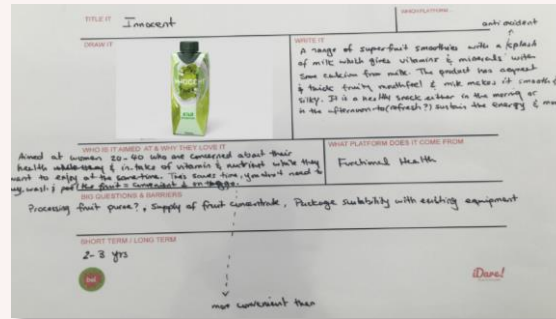 TITLE IT Innocent
WHICH PLATFORM...
anti oxident
DRAW IT
WRITE IT
A range of superfruit smoothies with a splash
of milk which gives vitamins & minerals with
some calcium from milk. The product has
& thick fruity mouthfeel & milk makes it smooth &
silky. It is a health snack either in the morning or
in the afternoon to (refresh?) sustain the energy &
WHO IS IT AIMED AT & WHY THEY LOVE IT
Aimed at women 20-40 who are concerned about their
health & intake of vitamin & nutrient while they
want to enjoy at the same time. They saves time, you don't need to
wash & peel the fruit = convenient & on
WHAT PLATFORM DOES IT COME FROM
Functional Health
BIG QUESTIONS & BARRIERS
Processing fruit puree?, Supply of fruit concentrate, Package suitability with existing equipment
SHORT TERM / LONG TERM
2-3 yrs
iDare!
more convenient then